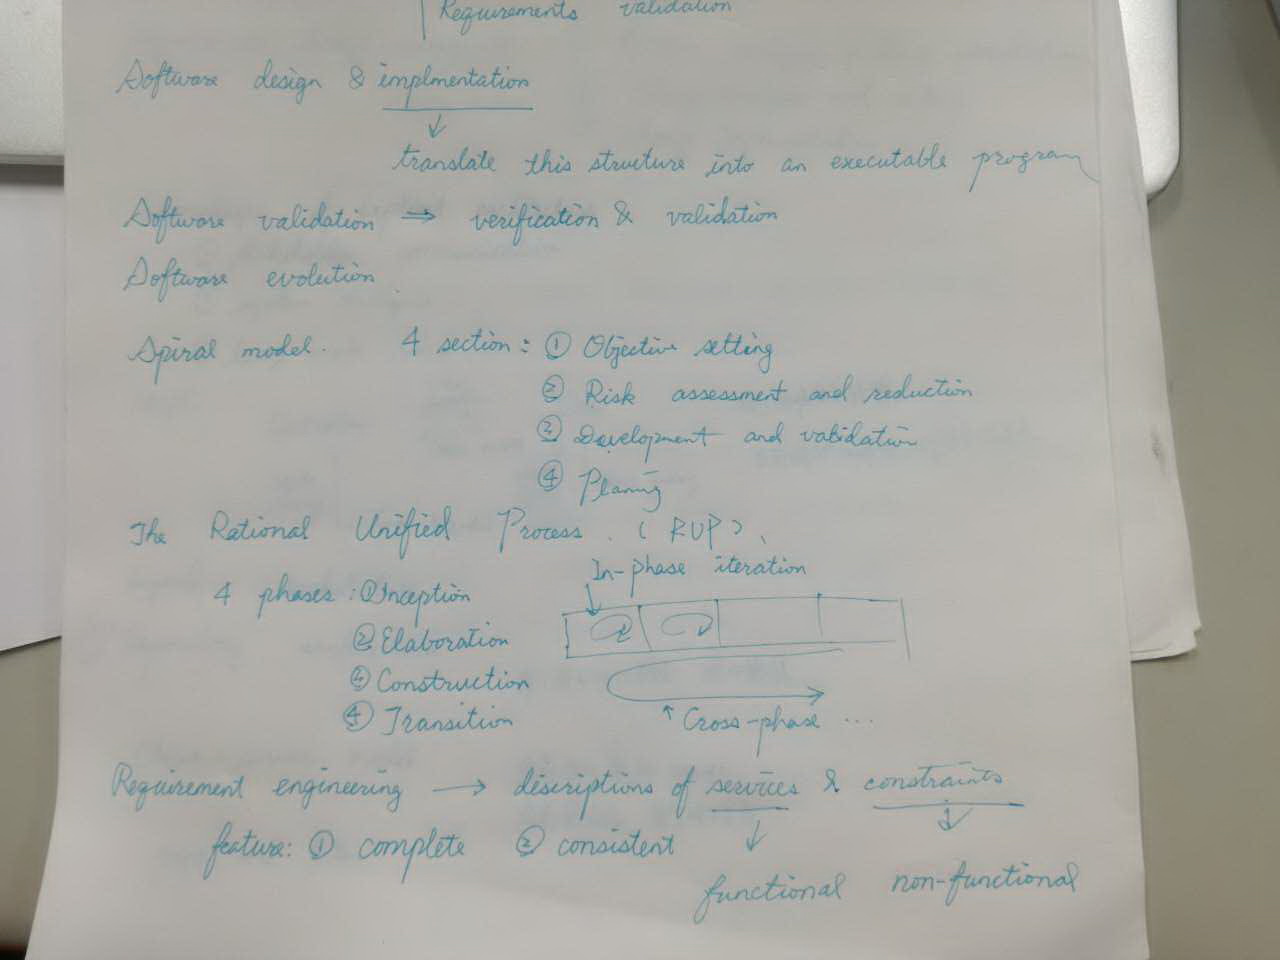 Requirements validation
Software design & implmentation
↓
translate this structure into an executable program
Software validation → verification & validation
Software evolution
Spiral model. 4 section: ① Objective setting
② Risk assessment and reduction
③ Development and validation
④ Planing
The Rational Unified Process. (RUP).
In-phase iteration
4 phases: ① Inception
② Elaboration
③ Construction
④ Transition
↑ Cross-phase ...
Requirement engineering → discriptions of services & constraints
feature: ① complete ② consistent ↓ ↓
functional non-functional